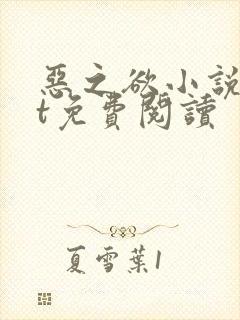 惡之欲小說
t免費閱讀
夏雪葉1